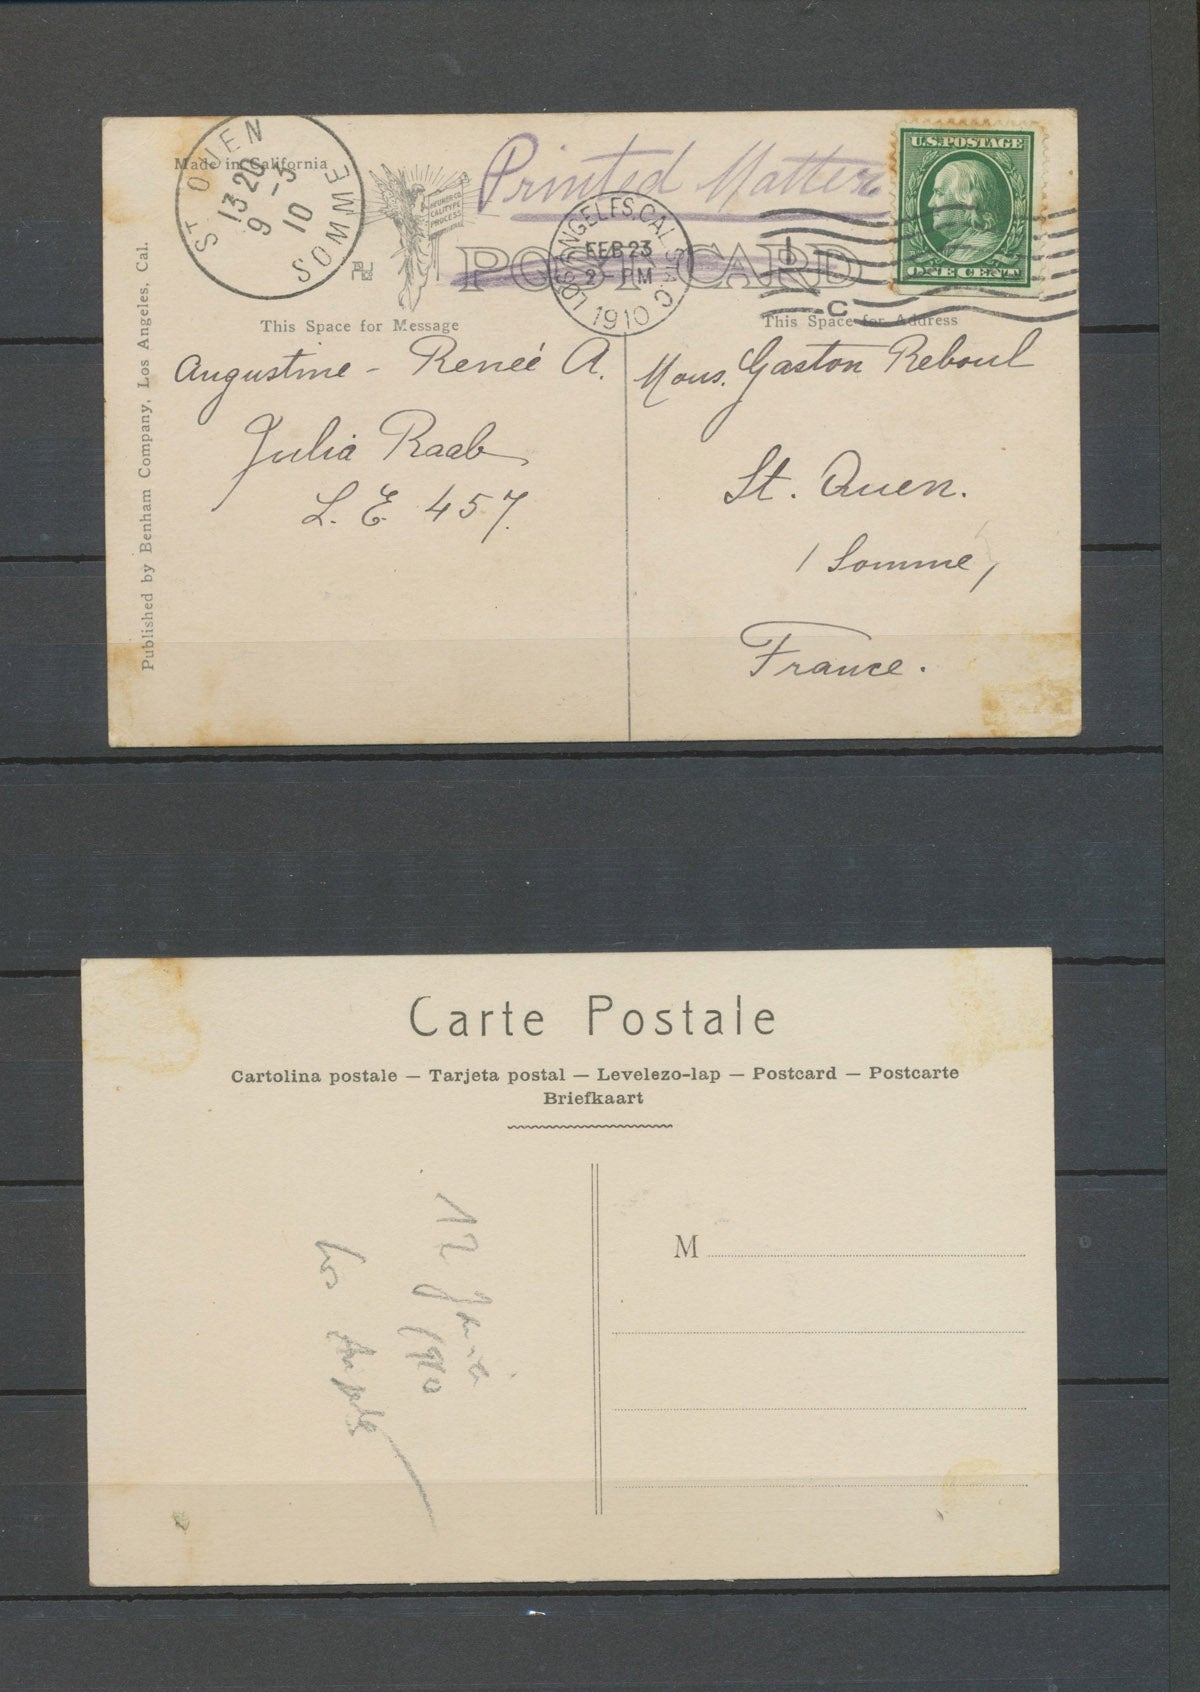 ST OUEN
13 20
9 - 3
10
SOMME
Made in California
Printed Matter
NEUNER CO.
CALITYPE
PROCESS
POST CARD
LOS ANGELES, CAL.
FEB 23
2 - PM
1910
C
U.S. POSTAGE
ONE CENT
Published by Benham Company, Los Angeles, Cal.
This Space for Message
Augustine - Reneé A.
Julia Raab
L. E 457.
This Space for Address
Mons. Gaston Reboul
St. Ouen.
(Somme)
France.
Carte Postale
Cartolina postale — Tarjeta postal — Levelezo-lap — Postcard — Postcarte
Briefkaart
M
12
1910
Los Angeles